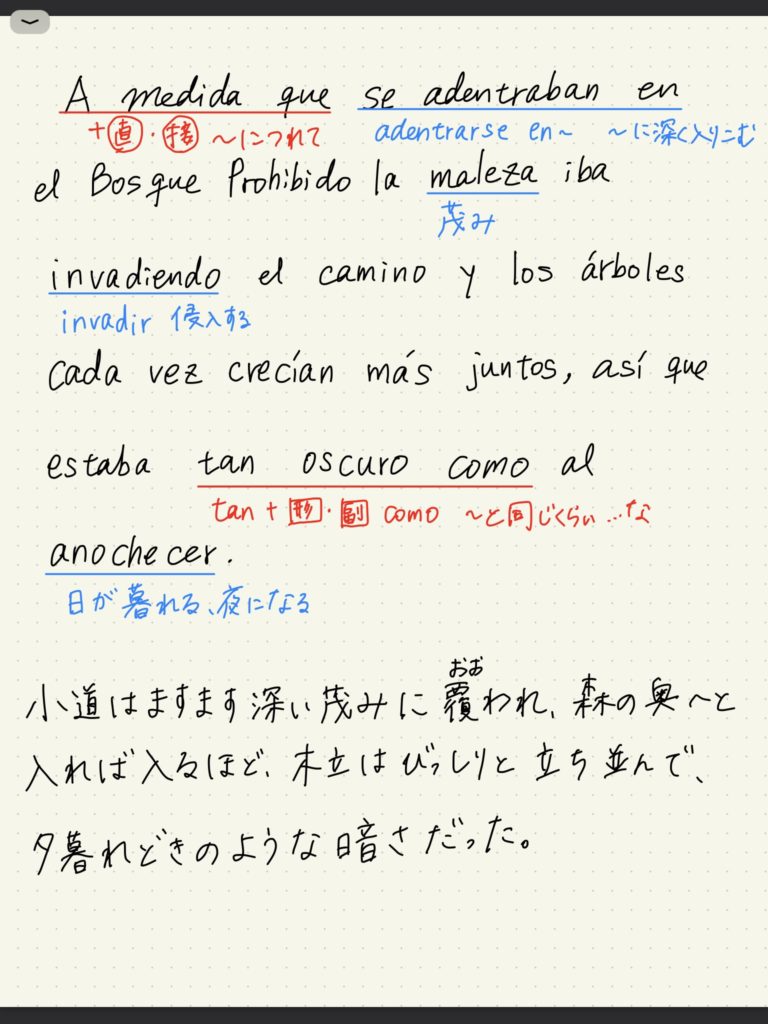 A medida que se adentraban en
+直・接 〜につれて adentrarse en〜 〜に深く入りこむ
el Bosque Prohibido la maleza iba
茂み
invadiendo el camino y los árboles
invadir 侵入する
cada vez crecían más juntos, así que
estaba tan oscuro como al
tan + 形・副 como 〜と同じくらい…な
anochecer.
日が暮れる、夜になる
おお
小道はますます深い茂みに覆われ、森の奥へと
入れば入るほど、木立はびっしりと立ち並んで、
夕暮れどきのような暗さだった。